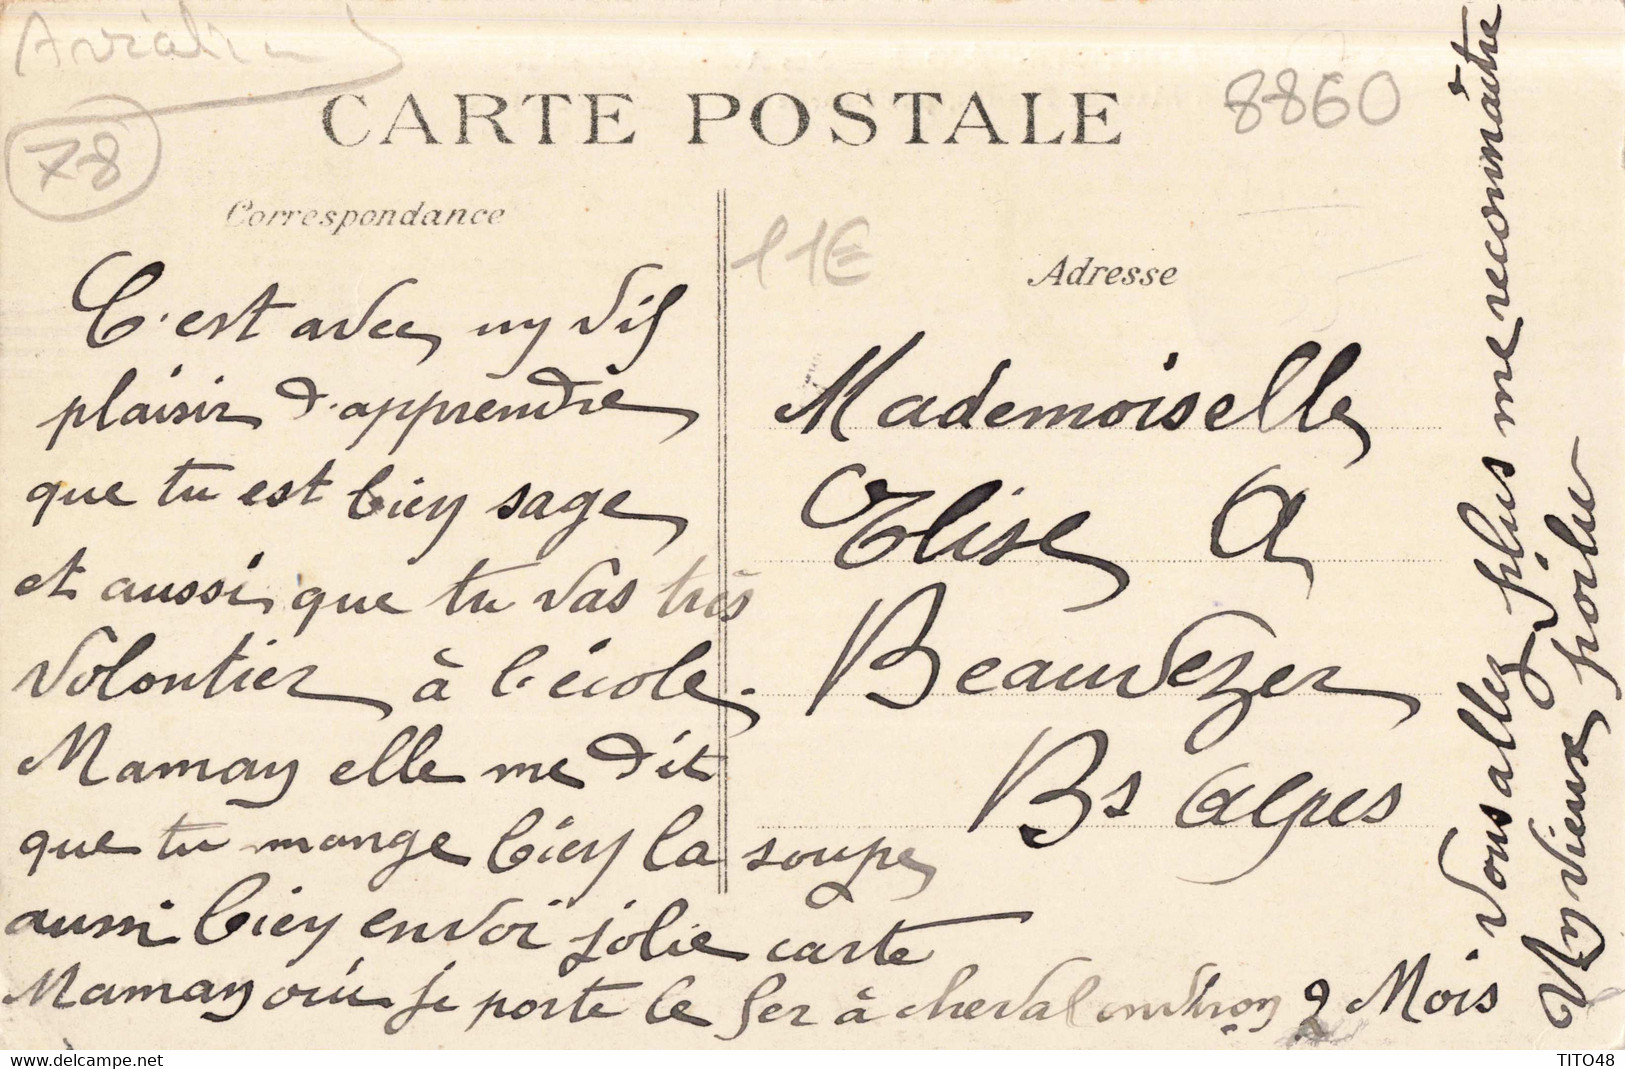 Aviation
78
CARTE POSTALE
8860
Correspondance
11€
Adresse
C'est avec un vif
plaisir d'apprendre
que tu est bien sage
et aussi que tu vas très
volontier à l'école.
Maman elle me dit
que tu mange bien la soupe
aussi bien envoi jolie carte
Maman oui je porte le fer à cheval environ 2 Mois
Mademoiselle
Elise A
Beauvezer
Bs Alpes
Vous allez plus me reconnaître
Un vieux poilu
TITO48
https://www.delcampe.net